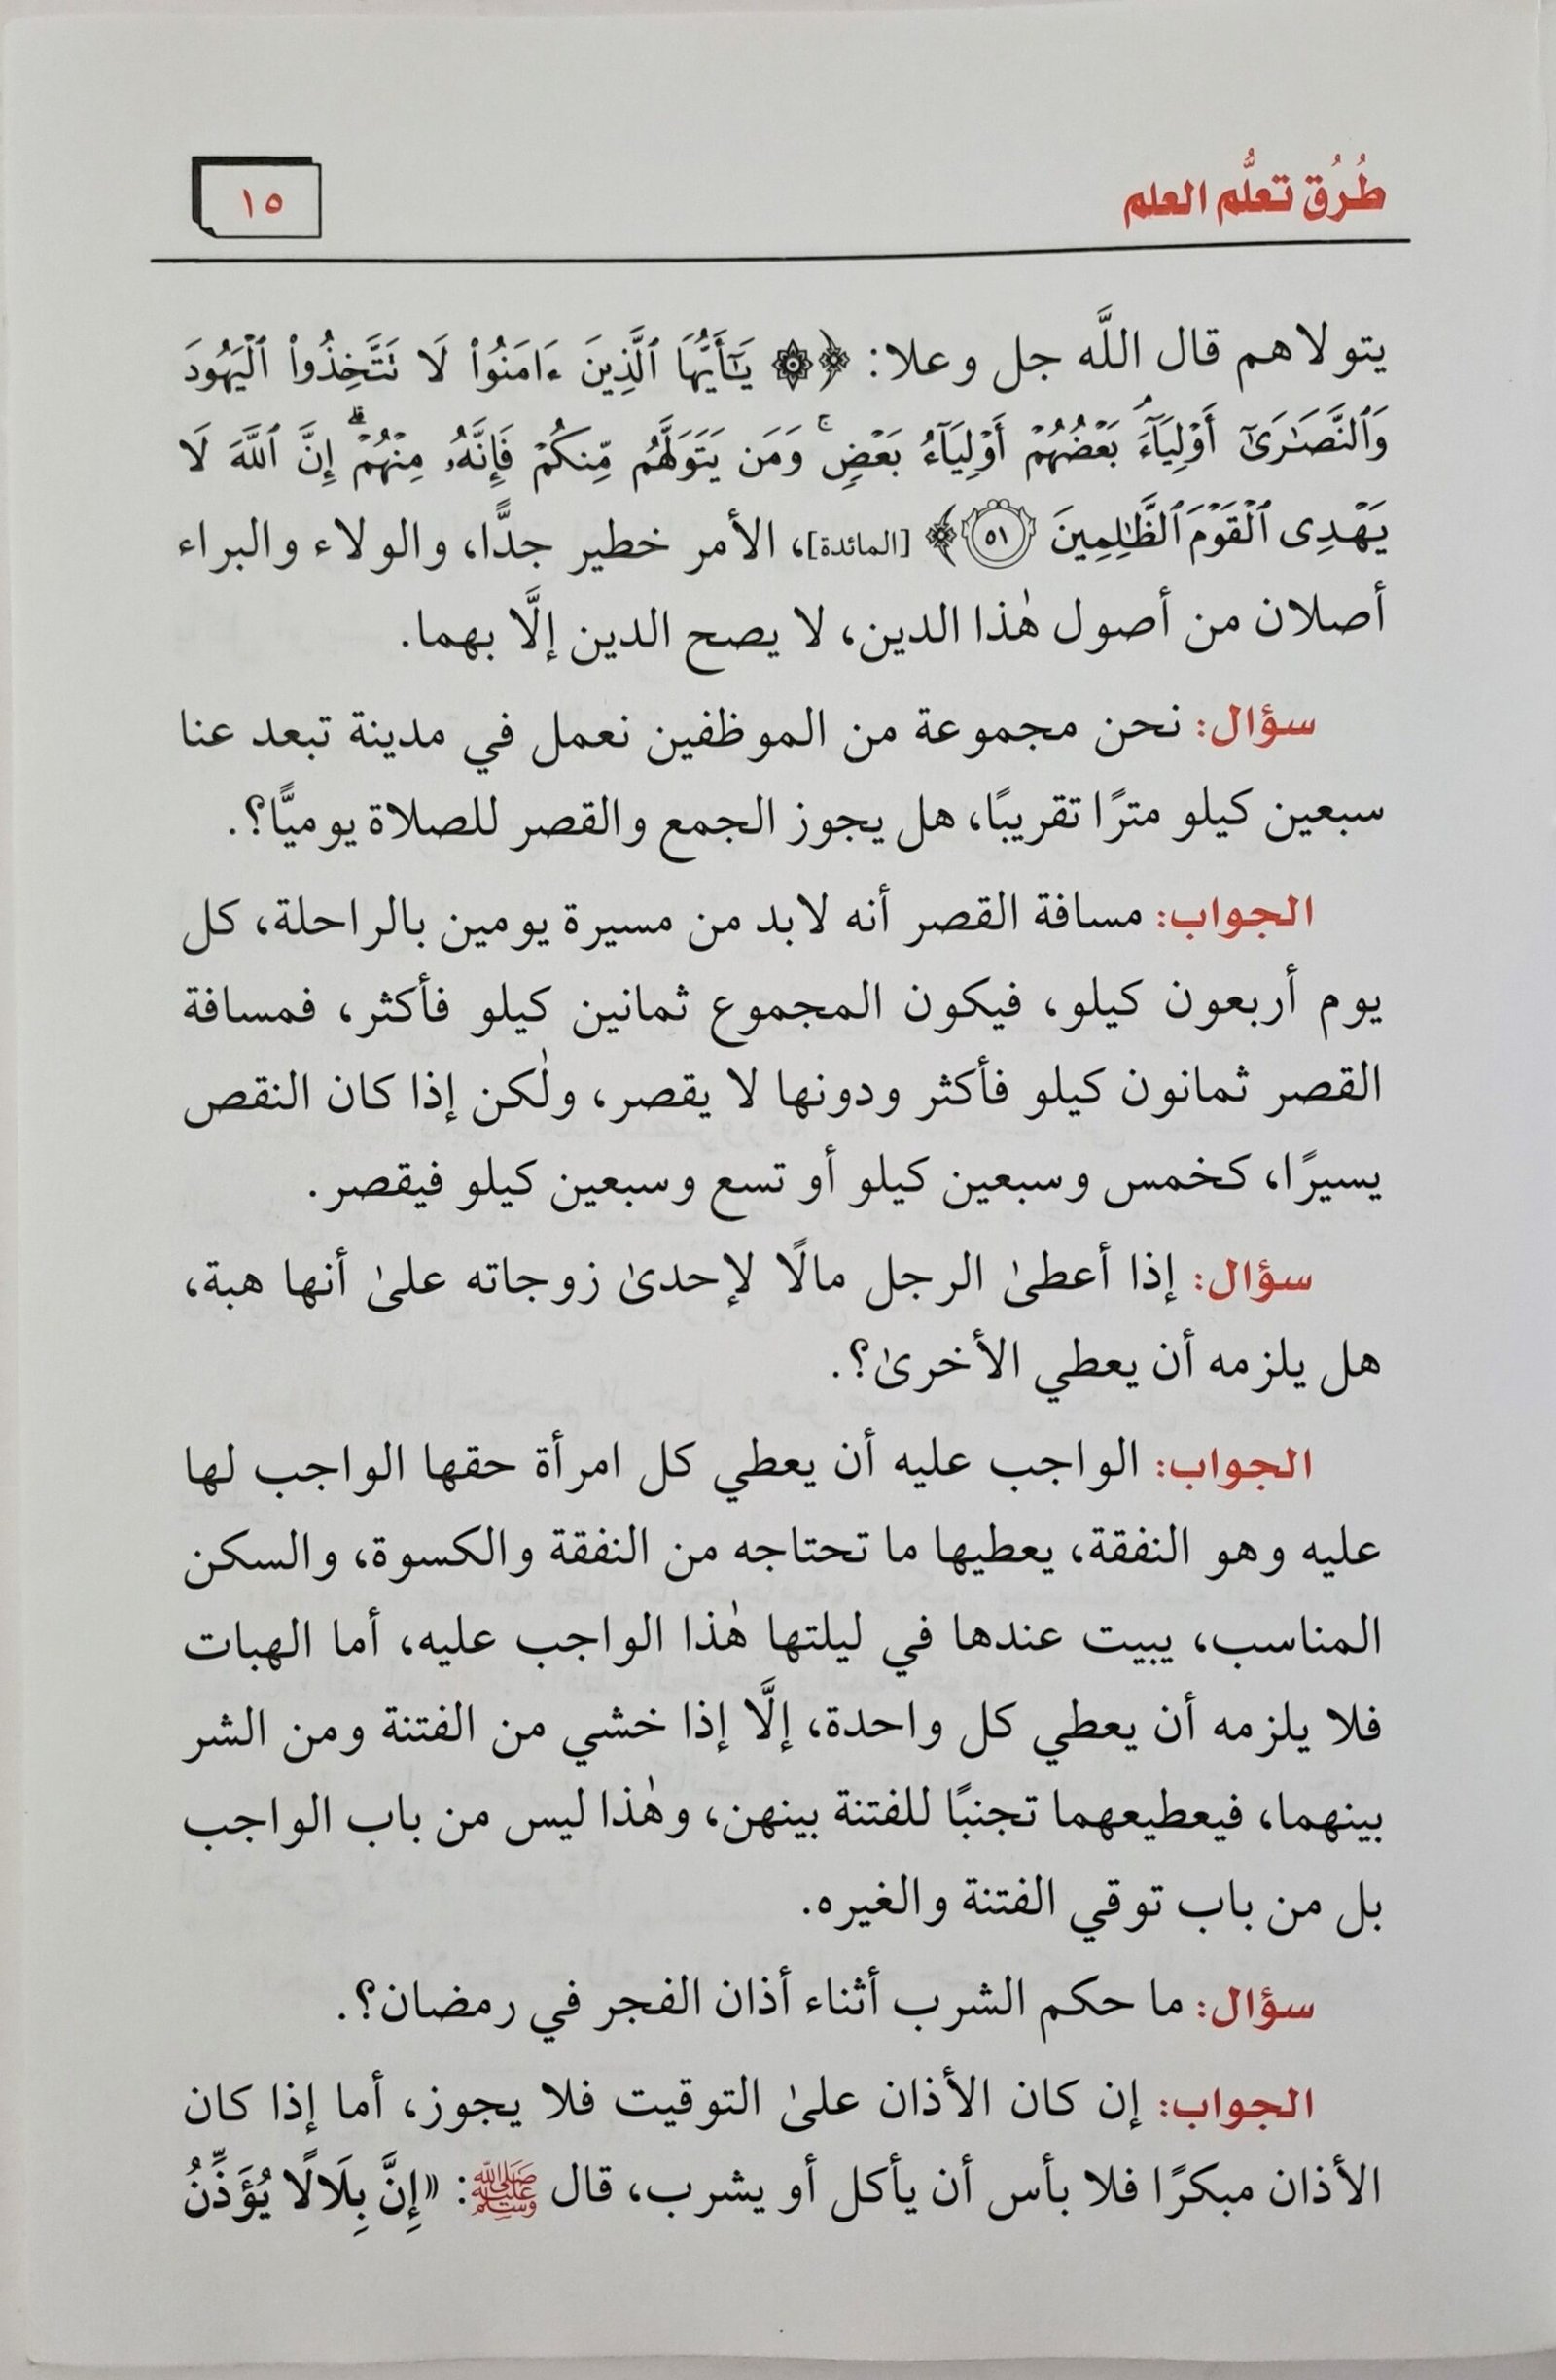 طُرُق تعلُّم العلم
١٥
يتولاهم قال اللَّه جل وعلا: ﴿۞ يَـٰٓأَيُّهَا ٱلَّذِينَ ءَامَنُوا۟ لَا تَتَّخِذُوا۟ ٱلْيَهُودَ
وَٱلنَّصَـٰرَىٰٓ أَوْلِيَآءَ ۘ بَعْضُهُمْ أَوْلِيَآءُ بَعْضٍ ۚ وَمَن يَتَوَلَّهُم مِّنكُمْ فَإِنَّهُۥ مِنْهُمْ ۗ إِنَّ ٱللَّهَ لَا
يَهْدِى ٱلْقَوْمَ ٱلظَّـٰلِمِينَ ٥١﴾ [المائدة]، الأمر خطير جدًّا، والولاء والبراء
أصلان من أصول هٰذا الدين، لا يصح الدين إلَّا بهما.
سؤال: نحن مجموعة من الموظفين نعمل في مدينة تبعد عنا
سبعين كيلو مترًا تقريبًا، هل يجوز الجمع والقصر للصلاة يوميًّا؟.
الجواب: مسافة القصر أنه لابد من مسيرة يومين بالراحلة، كل
يوم أربعون كيلو، فيكون المجموع ثمانين كيلو فأكثر، فمسافة
القصر ثمانون كيلو فأكثر ودونها لا يقصر، ولٰكن إذا كان النقص
يسيرًا، كخمس وسبعين كيلو أو تسع وسبعين كيلو فيقصر.
سؤال: إذا أعطىٰ الرجل مالًا لإحدىٰ زوجاته علىٰ أنها هبة،
هل يلزمه أن يعطي الأخرىٰ؟.
الجواب: الواجب عليه أن يعطي كل امرأة حقها الواجب لها
عليه وهو النفقة، يعطيها ما تحتاجه من النفقة والكسوة، والسكن
المناسب، يبيت عندها في ليلتها هٰذا الواجب عليه، أما الهبات
فلا يلزمه أن يعطي كل واحدة، إلَّا إذا خشي من الفتنة ومن الشر
بينهما، فيعطيعهما تجنبًا للفتنة بينهن، وهٰذا ليس من باب الواجب
بل من باب توقي الفتنة والغيره.
سؤال: ما حكم الشرب أثناء أذان الفجر في رمضان؟.
الجواب: إن كان الأذان علىٰ التوقيت فلا يجوز، أما إذا كان
الأذان مبكرًا فلا بأس أن يأكل أو يشرب، قال ﷺ: «إِنَّ بِلَالًا يُؤَذِّنُ